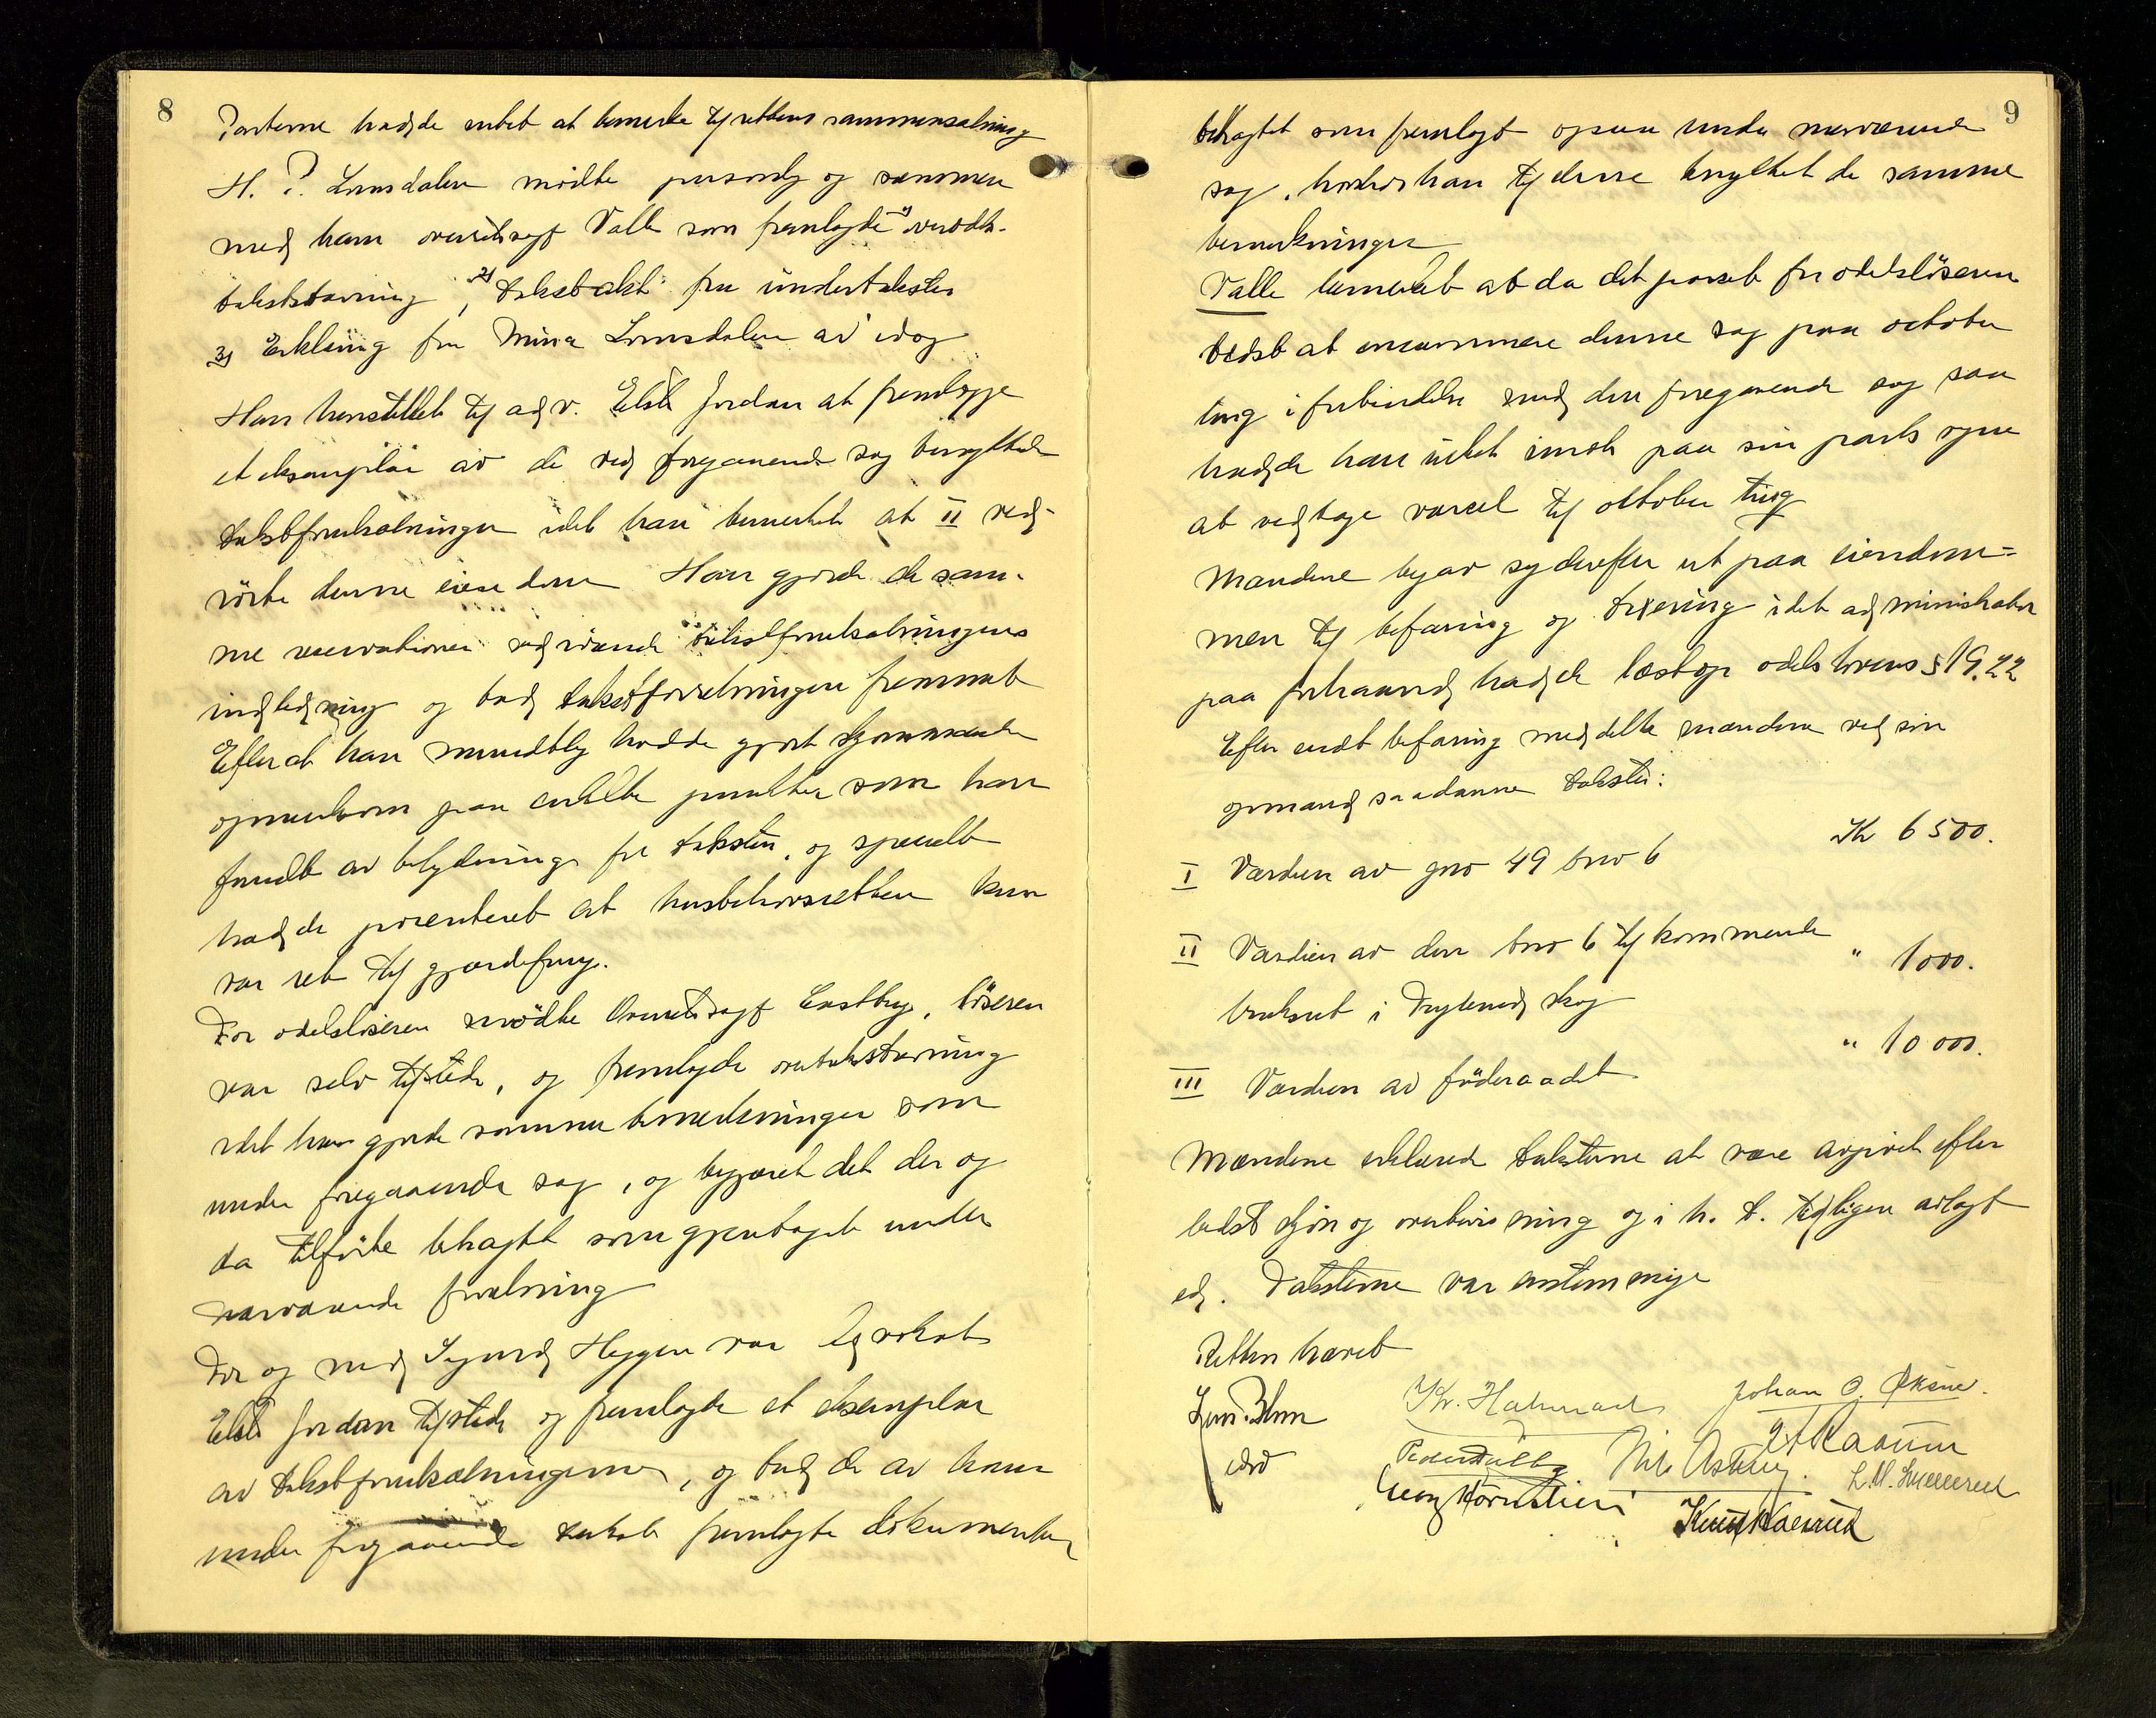 8
Parterne hadde intet at bemerke til rettens sammensætning
H. P. Lomsdalen mødte personlig og sammen
med ham overretssagf Valle som fremlagde 1) overodels-
takststevning, 2) takstakt fra undertaksten
3) Erklæring fra Mina Lomsdalen av idag
Han henstillet til adv. Elster Jordan at fremlægge
et eksemplar av de ved foregaaende sag benyttede
takstforutsætninger idet han bemerket at II ved-
rørte denne eiendom Han gjorde de sam-
me reservationer vedrørende takstforutsætningens
indledning og bad takstforretningen fremmet
Efterat han mundtlig hadde gjort skjønsmændene
opmerksom paa enkelte punkter som han
fandt av betydning for taksten, og specielt
hadde presenteret at husbehovsretten kun
var ret til gjærdefang.
For odelsløseren mødte Overretssagf Eastbye, løseren
var selv tilstede, og fremlagde overtakststevning
idet han gjorde samme bemerkninger som
under foregaaende sag, og begjæret det der og
da tilførte betragtet som gjentaget under
nærværende forretning
For og med Sigurd Heggen var Advokat
Elster Jordan tilstede og fremlagde et eksemplar
av takstforutsætningerne, og bad de av ham
under foregaaende takst fremlagte dokumenter
9
betragtet som fremlagt ogsaa under nærværende
sag, hvorhos han til disse knyttet de samme
bemerkninger
Valle bemerket at da det passet for odelsløseren
bedst at incaminere denne sag paa october
ting i forbindelse med den foregaaende sag saa
hadde han intet imot paa sin parts vegne
at vedtage varsel til october ting
Mændene begav sig derefter ut paa eiendom=
men til befaring og taxering idet administrator
paa forhaand hadde læst op odelslovens § 19, 22
Efter endt befaring meddelte mændene ved sin
opmand saadanne takster:
I Værdien av gno 49 bno 6 Kr 6 500.
II Værdien av den bno 6 tilkommende
bruksret i skog " 1000.
III Værdien av föderaadet " 10 000.
Mændene erklærede taksterne at være avgivet efter
bedst skjøn og overbevisning og i h. t. tidligere avlagt
ed. Taksterne var enstemmige
Retten hævet
Kr. Halmrast Johan O. Øksne.
Nils Astrup.